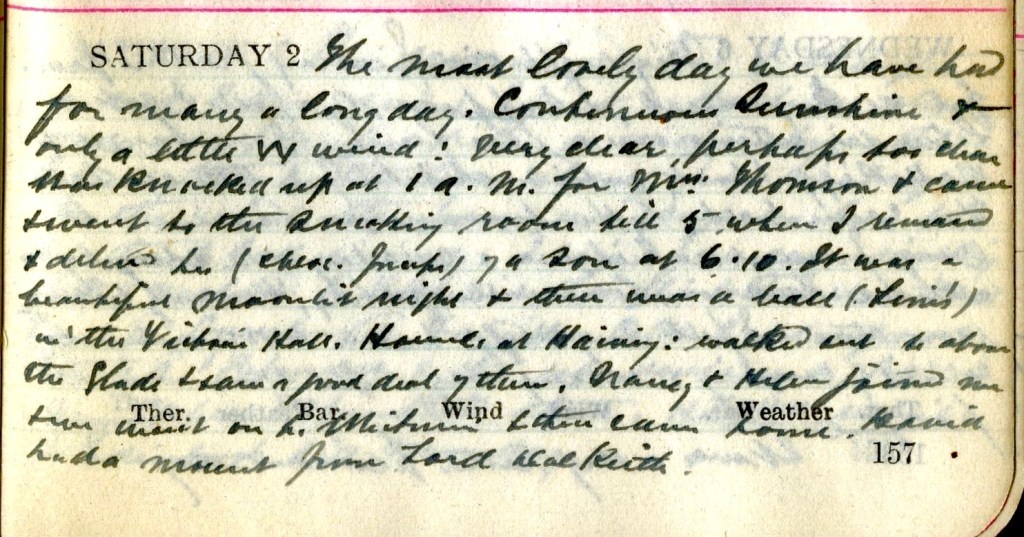 SATURDAY 2 The most lovely day we have had
for many a long day. Continuous Sunshine &
only a little W wind: Very clear, perhaps too clear
Was Knocked up at 1 a.m. for Mrs. Thomson & came
& went to the smoking room till 5 when I
& her (chlor. forceps) of a son at 6.10. It was a
beautiful moonlit night & there was a ball
in the Victoria Hall. Hounds at Haining: walked out to above
the Glade & saw a good deal of them. Nancy & Helen joined me
Ther. Bar. Wind Weather
& we went on to & then came home. David
had a mount from Lord Dalkeith.
157